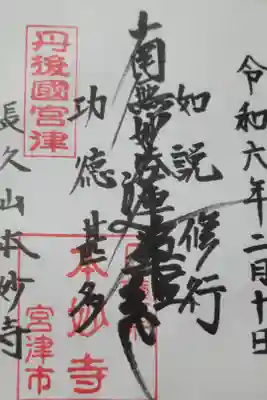 令和六年二月十日
如説修行
南無妙法蓮華経
功徳甚多
丹後國宮津
長久山本妙寺
本妙寺
宮津市